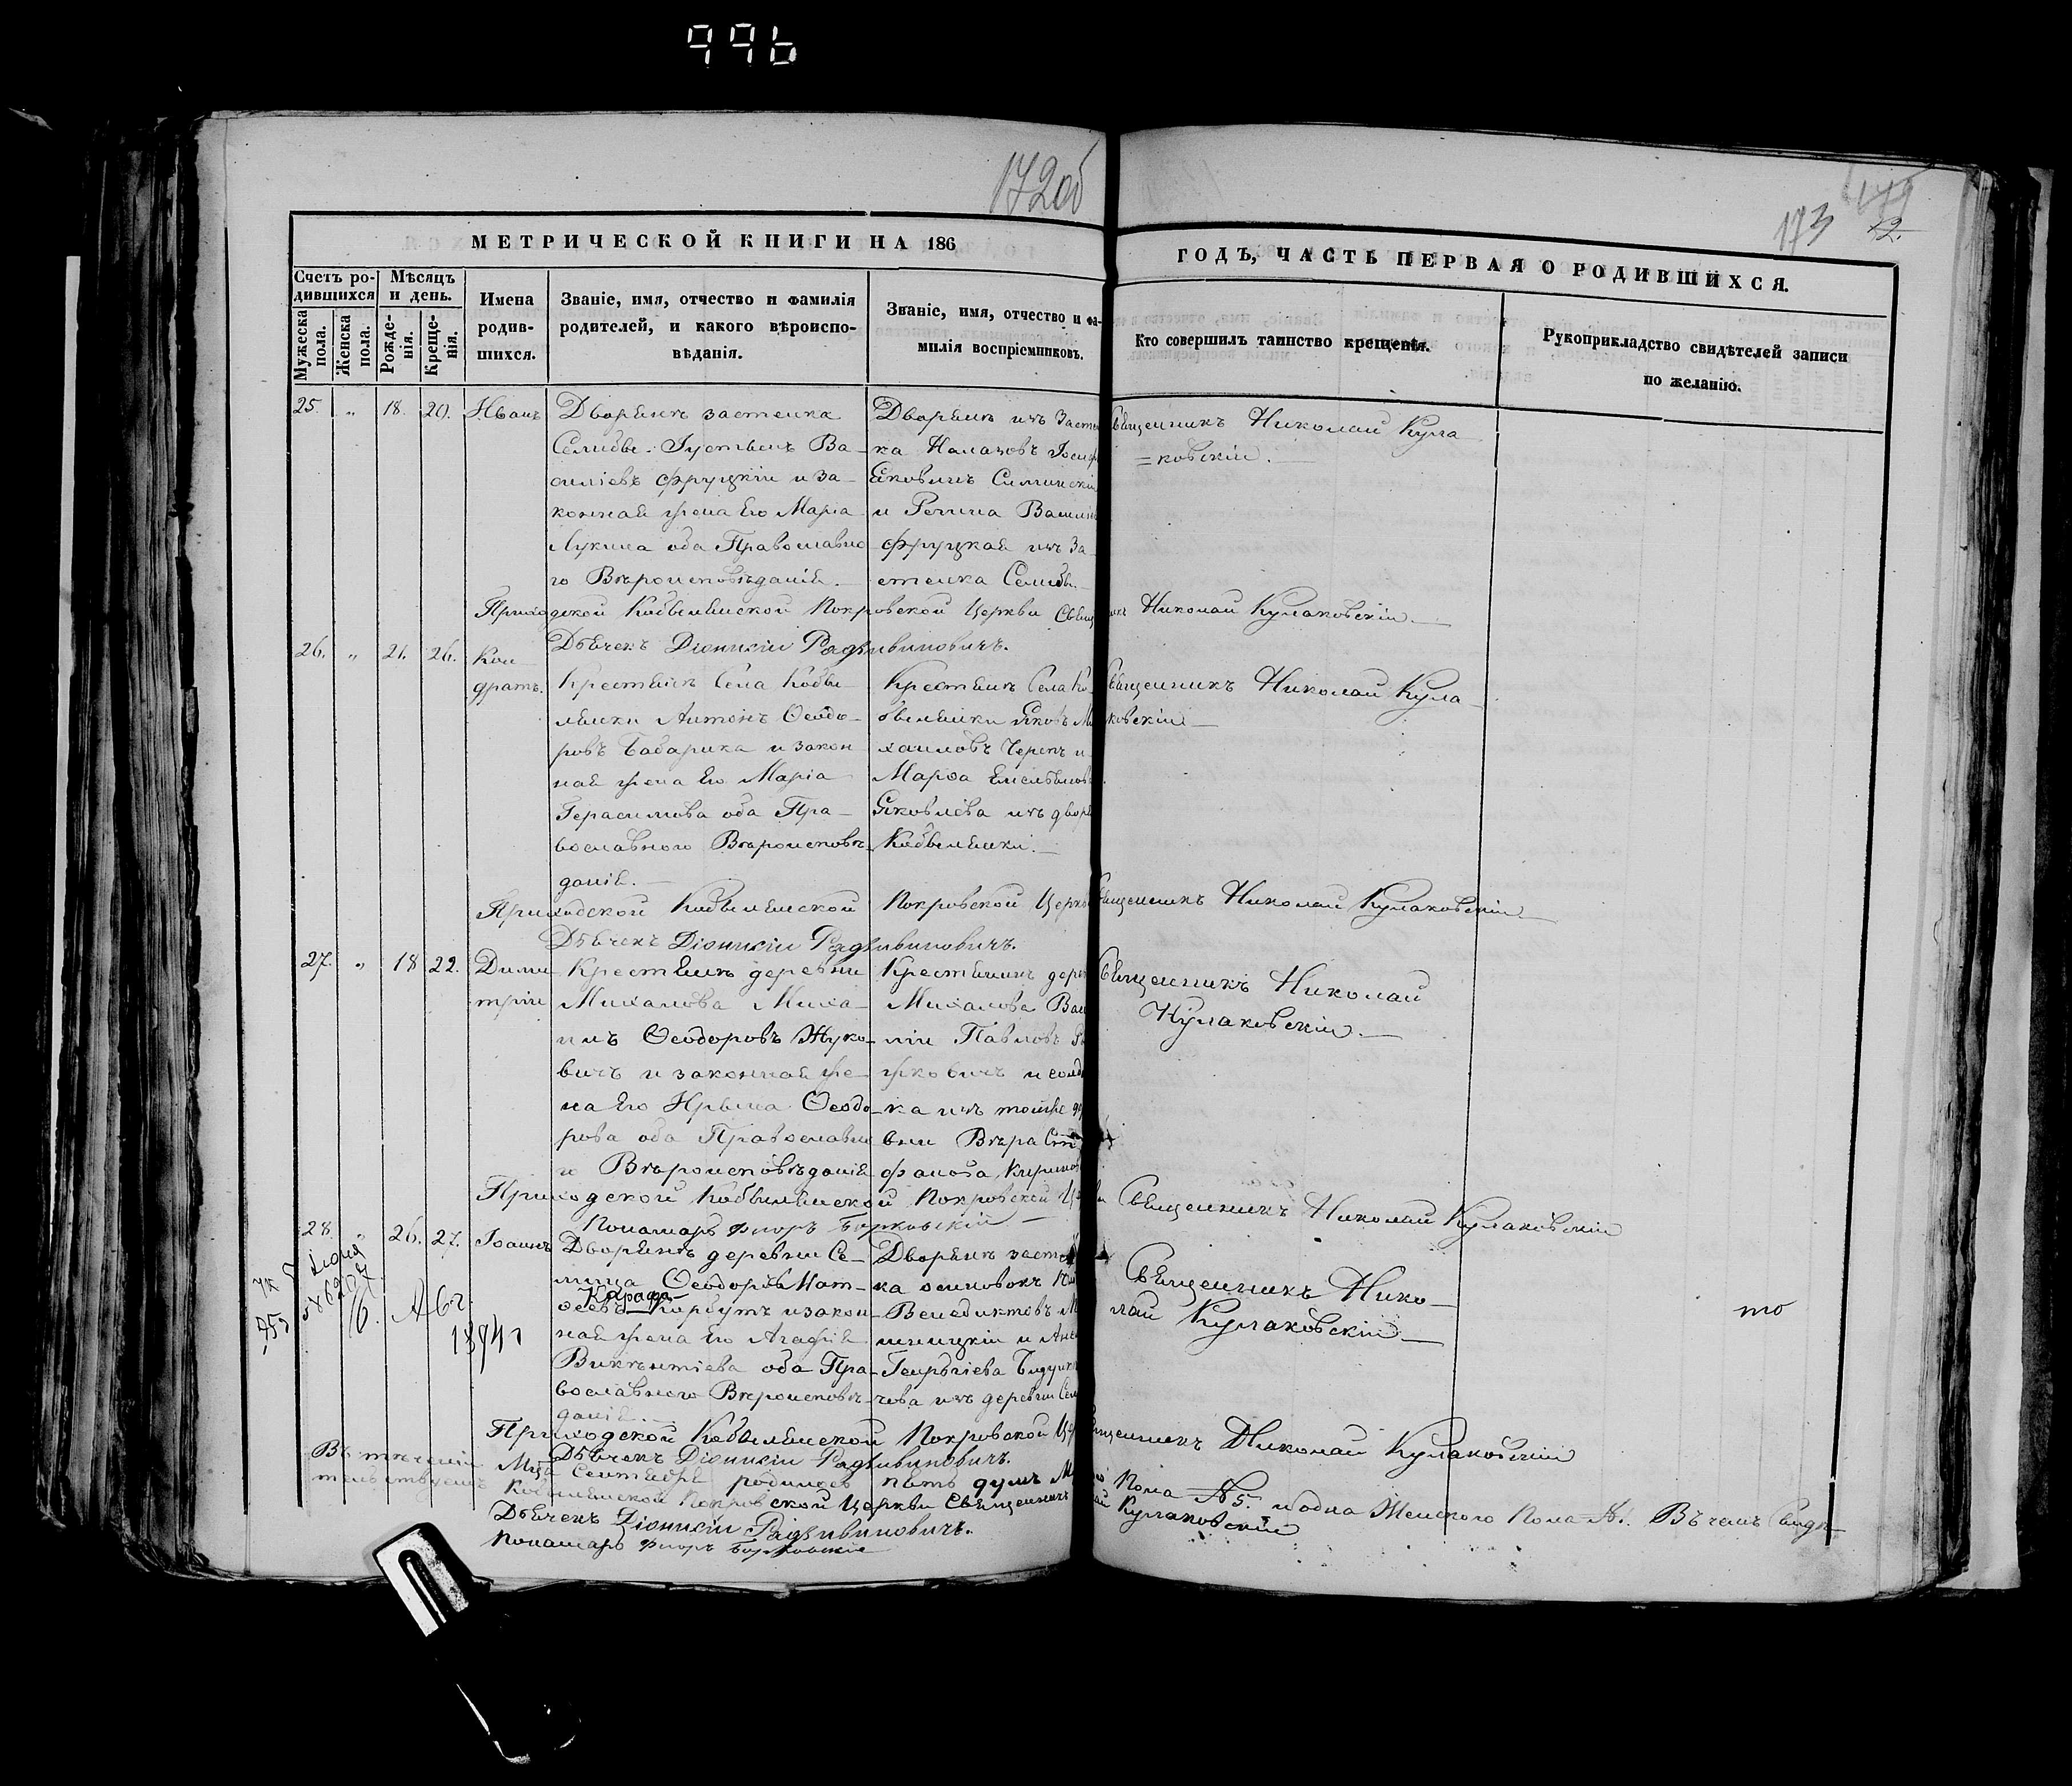 996
172об
173
2.
МЕТРИЧЕСКОЙ КНИГИ НА 186
ГОДЪ, ЧАСТЬ ПЕРВАЯ О РОДИВШИХСЯ.
Счетъ ро-
дившихся
Мужеска
пола.
Женска
пола.
Мѣсяцъ
и день.
Рожде-
нія.
Креще-
нія.
Имена
родив-
шихся.
Званіе, имя, отчество и фамилія
родителей, и какого вѣроиспо-
вѣданія.
Званіе, имя, отчество и фа-
милія воспріемниковъ.
Кто совершилъ таинство крещенія.
Рукоприкладство свидѣтелей записи
по желанію.
25. „ 18. 20. Иванъ
Дворянъ застенка
Селибы Густынъ Ва-
силіевъ Фруцкій и за-
конная жена Его Марія
Лукина оба Православно
го Вѣроисповѣданія.
Дворянъ изъ Засте
ка Иосиф
Яковичъ
и Регина Василі
Фруцкая изъ За-
стенка Селибы
Священникъ Николай Кула
=ковскій.
Приходской Кобылянской Покровской Церкви Свящ никъ Николай Кулаковскій
Дьячекъ Діонисій Радзивиновичъ.
26. „ 21. 26. Кон
дратъ.
Крестьянъ Села Кобы-
лянки Антонъ Ѳеодо-
ровъ Бабарика и закон
ная жена Его Марія
Герасимова оба Пра-
вославного Вѣроисповѣ-
данія.
Крестьянъ Села Ко-
былянки Яковъ Ми
хаиловъ Черепъ и
Марѳа Емельянов
Яковлева изъ двора
Кобылянки.
Священникъ Николай Кула
ковскій
Приходской Кобылянской Покровской Церкв Священникъ Николай Кулаковскій
Дьячекъ Діонисій Радзивиновичъ.
27. „ 18 22. Дими
трій
Крестьянъ деревни
Михалова Миха-
илъ Ѳеодоровъ Жуко-
вичъ и законная же-
на Его Ирына Ѳеодо-
рова оба Православно
го Вѣроисповѣданія
Крестьянинъ дере
Михалова Васи
лій Павловъ
жковичъ и солд
ка изъ тойже де
вни Вѣра Сте
фанова
Священникъ Николай
Кулаковскій.
Приходской Кобылянской Покровской Це ви Священникъ Николай Кулаковскій
Пономарь Флоръ Борковскій
28. „ 26. 27. Іоаннъ
Дворянъ деревни Се-
лища Ѳеодоръ Мат-
Карафа-
ѳеевъ Корбутъ и закон
ная жена Его Агафія
Викентіева оба Пра-
вославного Вѣроисповѣ-
данія.
Дворянъ засте
ка осиповок
Венедиктовъ
и
Георгіева
изъ деревни Сел
Священникъ Нико-
лай Кулаковскій
16. Авг.
1894 г
то
Приходской Кобылянской Покровской Цер Священникъ Николай Кулаковскій
Дьячекъ Діонисій Радзивиновичъ.
Въ теченіи Мцѣ Сентябрѣ родилось пять душъ М Пола №5. и одна Женского Пола №1. Въ чемъ Свидѣ-
тельствуемъ Кобылянской Покровской Церкви Священникъ Кулаковскій
Дьячекъ Діонисій Радзивиновичъ.
Пономарь Флоръ Борковскій